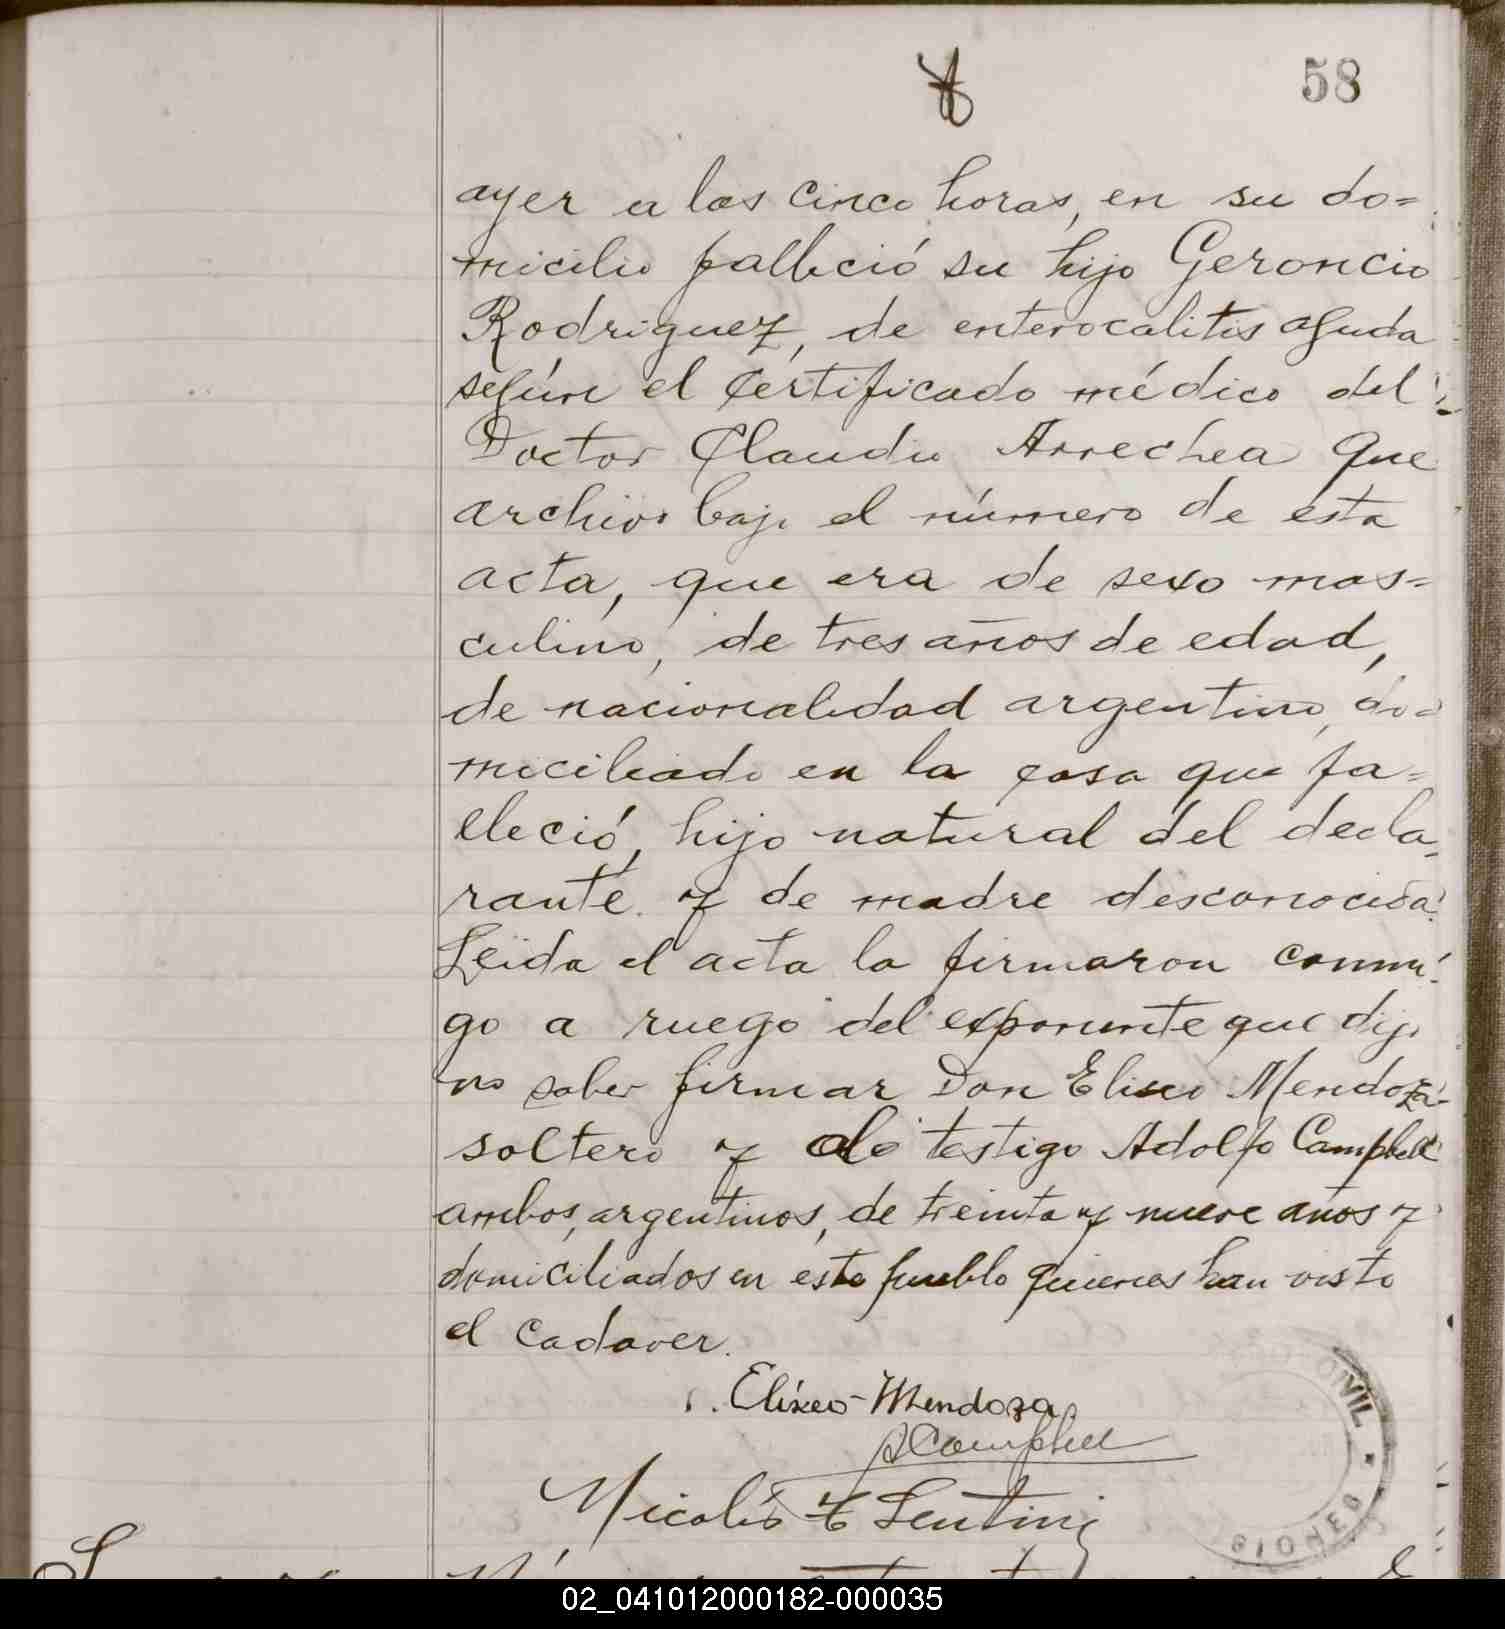 58
ayer a las cinco horas, en su do=
micilio falleció su hijo Geroncio
Rodriguez, de enterocalitis aguda
según el certificado médico del
Doctor Claudio Arrechea que
archivo bajo el número de esta
acta, que era de sexo mas=
culino, de tres años de edad,
de nacionalidad argentino, do=
miciliado en la casa que fa=
lleció, hijo natural del decla=
rante y de madre desconocida.
Leida el acta la firmaron conmi-
go a ruego del exponente que dijo
no saber firmar Don Eliseo Mendoza
soltero y de testigo Adolfo Campbell
ambos, argentinos, de treinta y nueve años y
domiciliados en este pueblo quienes han visto
el cadaver.
Eliseo Mendoza
ACampbell
Nicolás
CIVIL
02_041012000182-000035